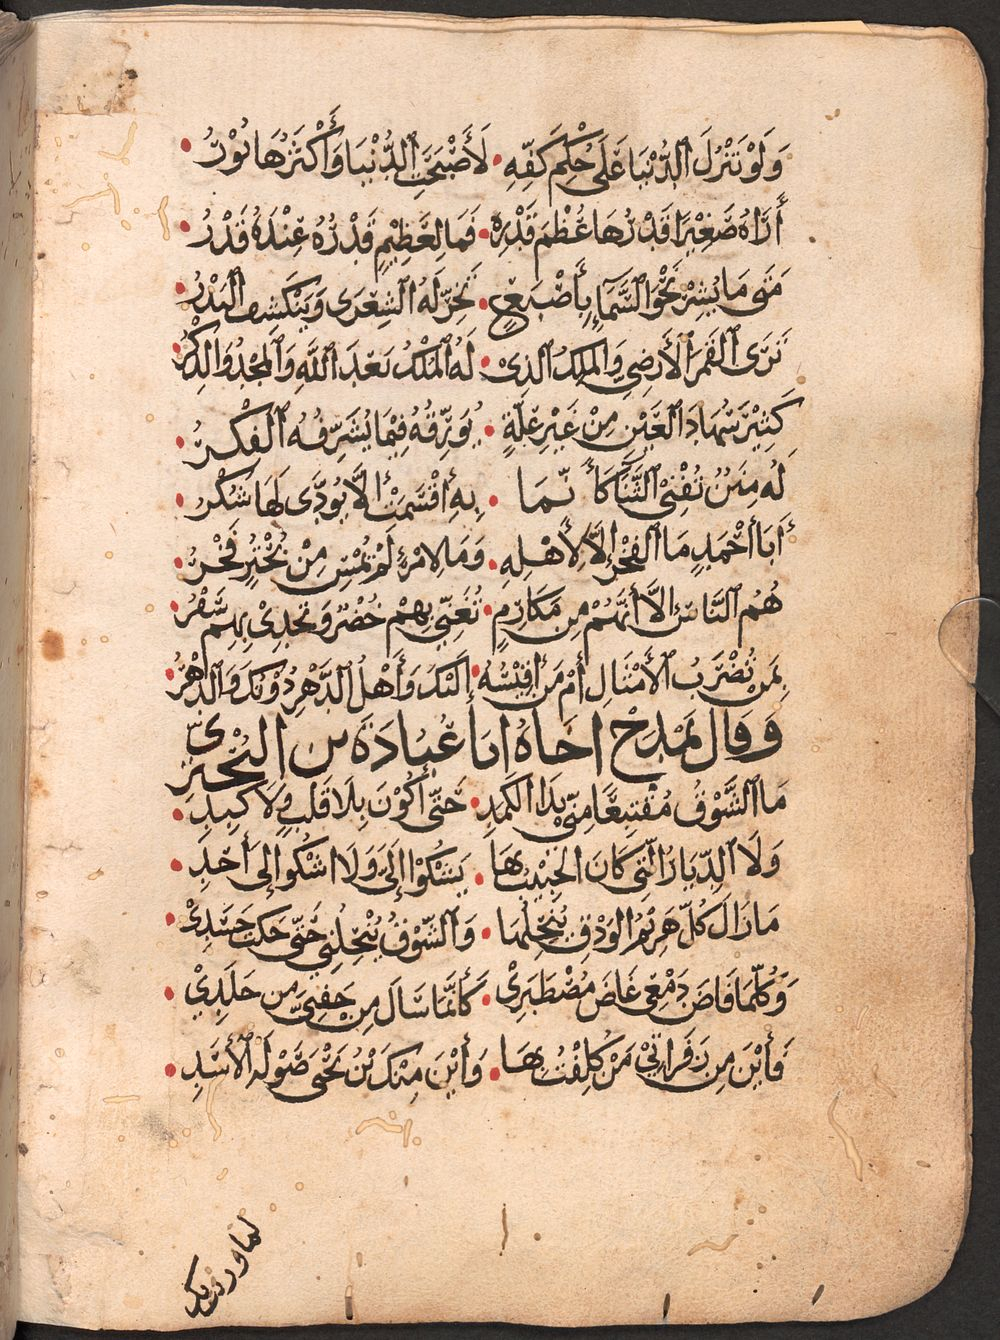 وَلَوْ تَنْزِلُ ٱلدُّنْيَا عَلَى حُكْمِ كَفِّهِ • لَأَصْبَحَتِ ٱلدُّنْيَا وَأَكْثَرُهَا نُوْرُ •
أَرَاهُ صَغِيْرًا قَدْرُهَا عُظْمَ قَدْرِهِ • فَمَا لِعَظِيْمٍ قَدْرُهُ عِنْدَهُ قَدْرُ •
مَتَى مَا يُشِرْ نَحْوَ السَّمَآءِ بِأُصْبَعٍ • تَخِرَّ لَهُ الشِّعْرَى وَيَنْكَسِفِ البَدْرُ •
تَرَى ٱلقَمَرَ الأَرْضِيَّ وَالمَلِكَ الَّذِيْ • لَهُ ٱلمُلْكُ بَعْدَ ٱللَّهِ وَٱلمَجْدُ وَالذِّكْرُ •
كَثِيْرُ سُهَادِ ٱلعَيْنِ مِنْ غَيْرِ عِلَّةٍ • يُوَرِّقُهُ فِيْمَا يُشَرِّفُهُ ٱلفِكْرُ •
لَهُ مِنَنٌ تُفْنِيْ الثَّنَآءَ كَأَنَّمَا • بِهِ أَقْسَمَتْ أَلَّا يُودَّى لَهَا شُكْرُ •
أَبَا أَحْمَدٍ مَا ٱلفَخْرُ إِلَّا لِأَهْلِهِ • وَمَا لِامْرِئٍ لَمْ يُمْسِ مِنْ بُحْتُرٍ فَخْرُ •
هُمُ ٱلنَّاسُ إِلَّا أَنَّهُمْ مِنْ مَكَارِمٍ • تُغَنِّي بِهِمْ حُضْرٌ وَتَحْدِيْ بِهِمْ سَفْرُ •
بِمَنْ تُضْرَبُ الأَمْثَالُ أَمْ مَنْ أَقِيْسُهُ • إِلَيْكَ وَأَهْلُ الدَّهْرِ دُوْنَكَ وَالدَّهْرُ •
وَقَالَ يَمْدَحُ اخَاهُ ابَا عُبَادَةَ بن البُحْتُرِيّ
مَا ٱلشَّوْقُ مُقْتَنِعًا مِنّي بِذَا الكَمَدِ • حَتَّى أَكُوْنَ بِلَا قَلْبٍ وَلَا كَبِدِ •
وَلَا ٱلدِّيَارُ الَّتِي كَانَ الحَبِيْبُ بِهَا • يَشْكُوْا إِلَيَّ وَلَا اشْكُوْا إِلَى أَحَدِ •
مَا زَالَ كُلُّ هَزِيْمِ الوَدْقِ يُنْحِلُهَا • وَٱلشَّوْقُ يُنْحِلُنِي حَتَّى حَكَتْ جَسَدِيْ •
وَكُلَّمَا فَاضَ دَمْعِي غَاضَ مُصْطَبَرِيْ • كَأَنَّمَا سَالَ مِنْ جَفْنَيَّ مِنْ جَلَدِيْ •
فَأَيْنَ مِنْ زَفَرَاتِيْ مَنْ كَلِفْتُ بِهَا • وَأَيْنَ مِنْكَ بْنُ يَحْيَى صَوْلَةُ ٱلأَسَدِ •